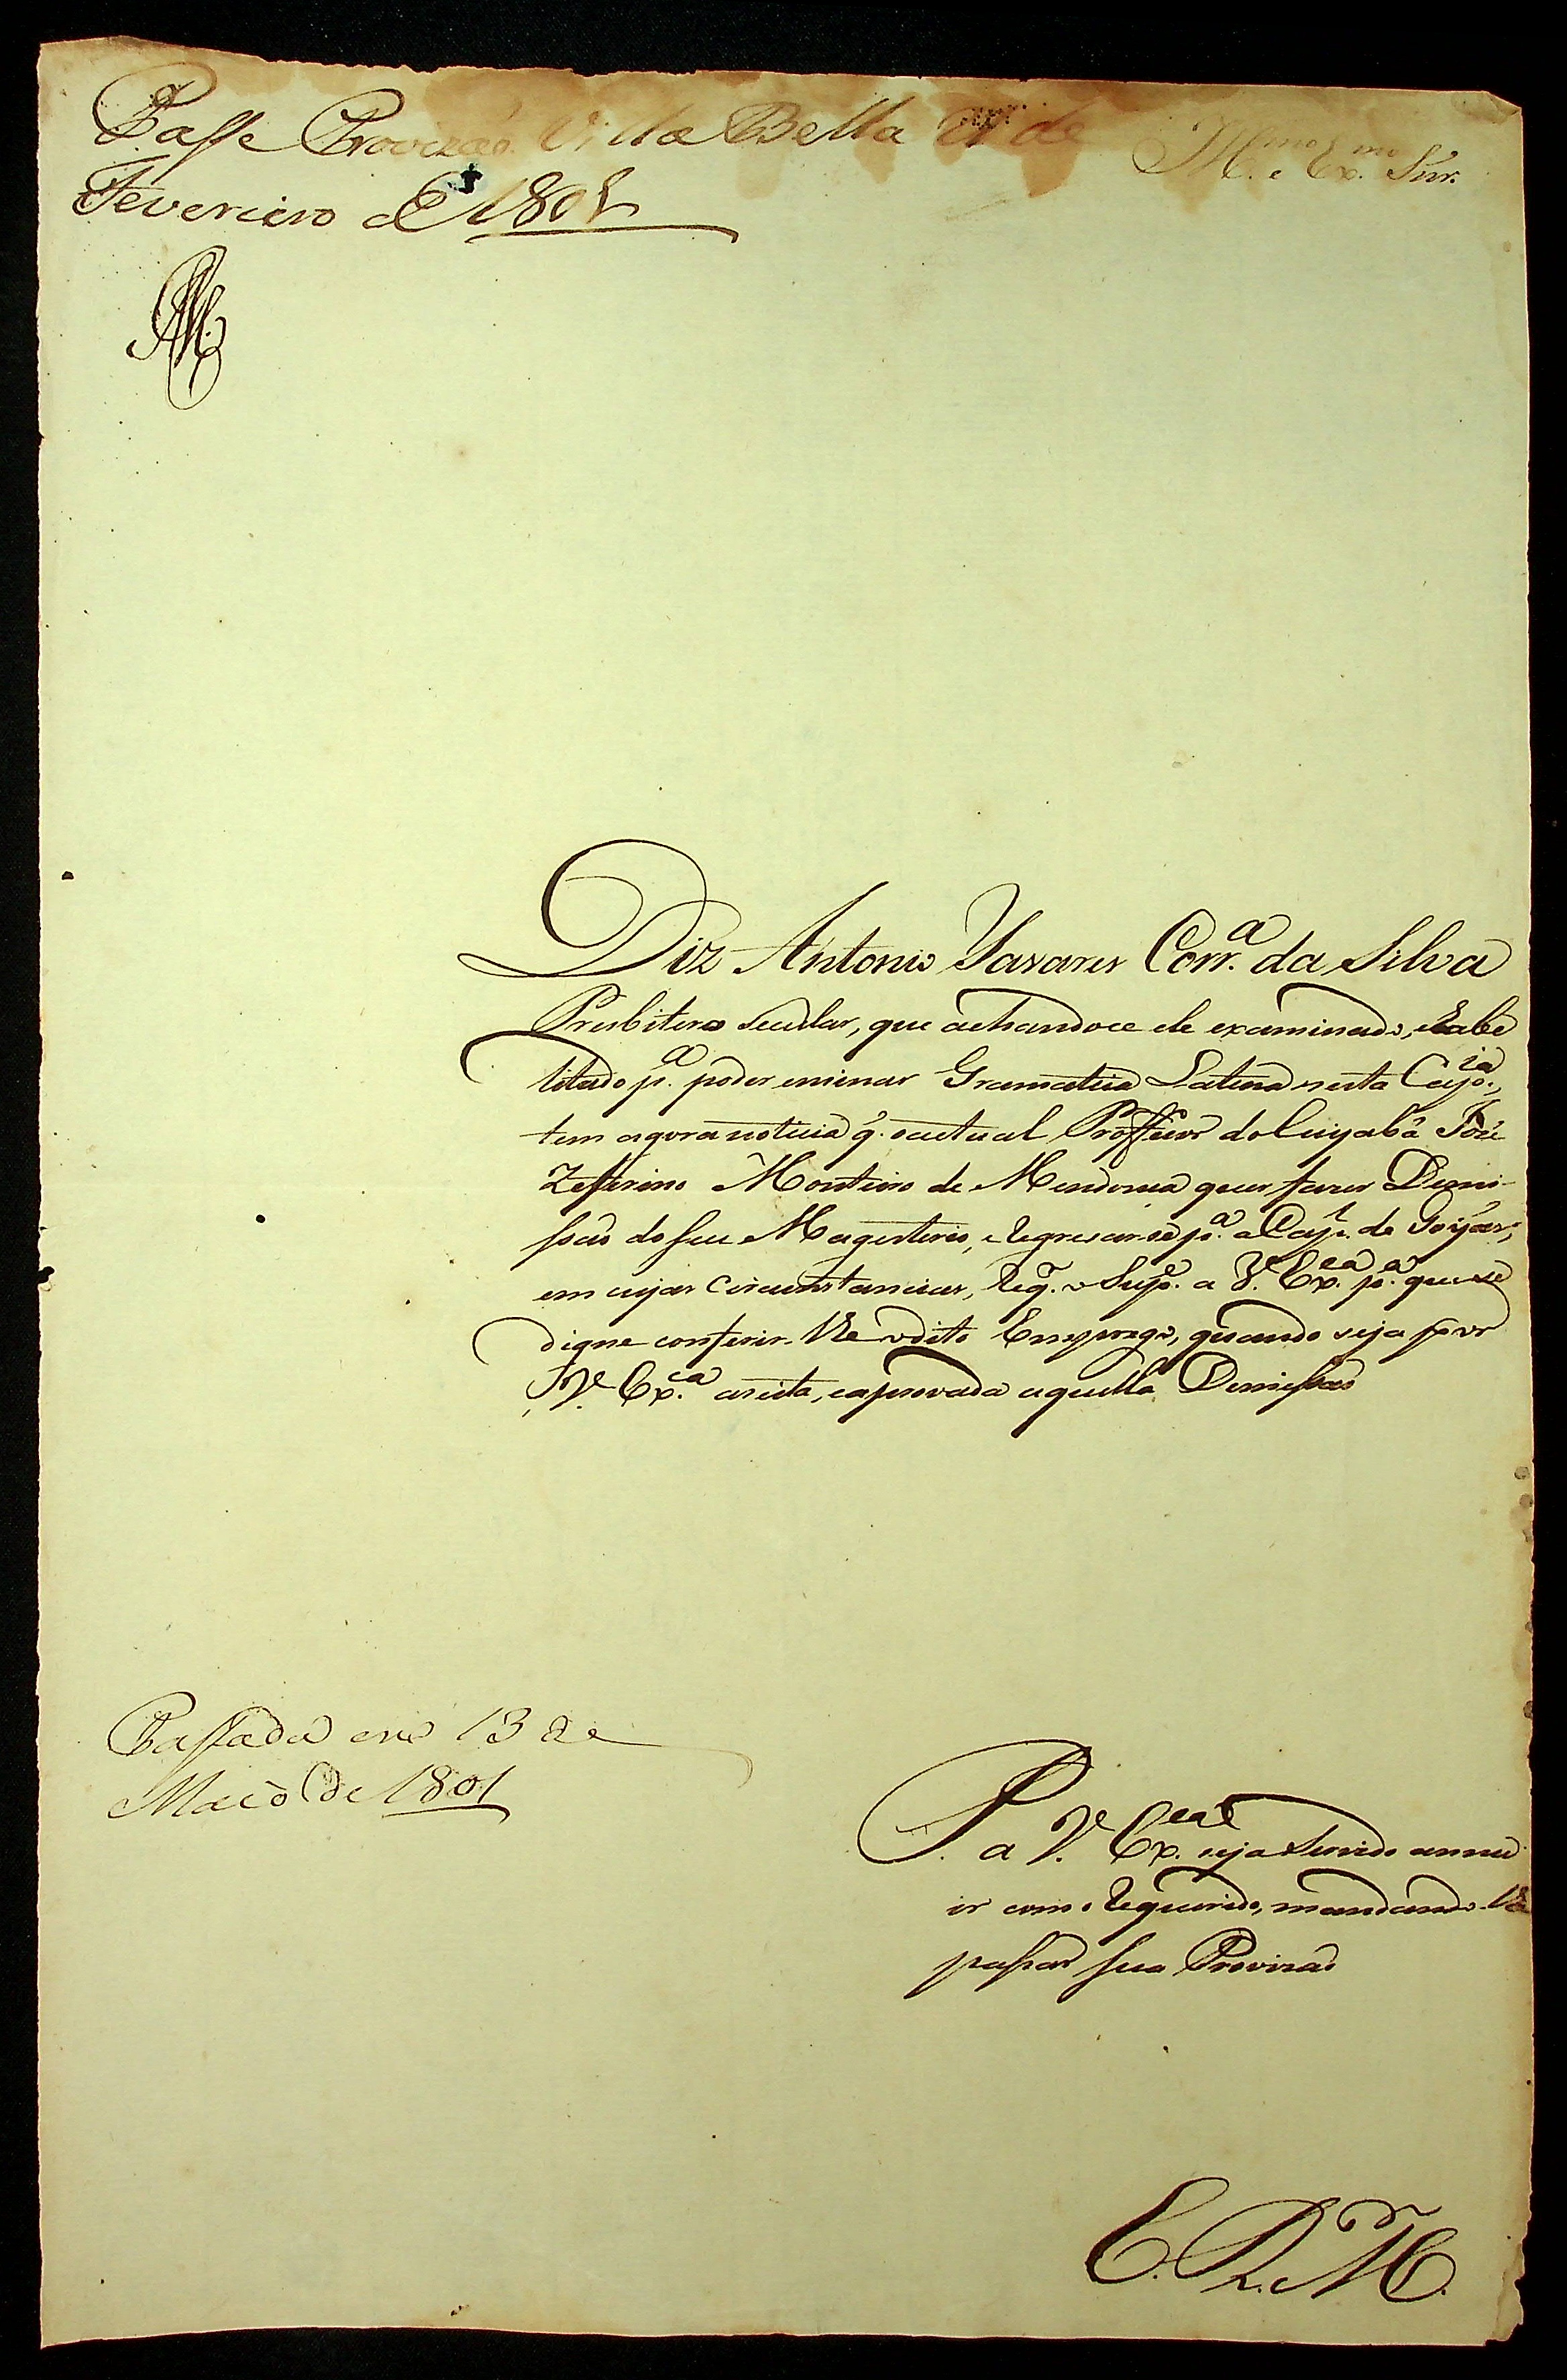 Passe Provizaõ. Villa Bella de
Fevereiro de 1801
Ill.mo e Ex.mo Snr.
Diz Antonio Tavares Corr.a da Silva
Presbitero Secular, que achandoce ele examinado, e abe
litado p.a poder ensinar Gramatica Latina nesta Cap.ia,
tem agora noticia q. o actual Proffessor do Cuyabá José
Zeferino Monteiro de Mendonça quer fazer Demi-
ssaõ do seu Magesterio, e regresar-se p.a a Cap.t de Goyáz;
em cujas circunstancias, req.r o Sup.e a V.e Ex.ca p.a que se
digne conferir-lhe o dito Emprego, quando seja por
V.e Ex.ca aseita, e aprovada aquella Demissaõ
Passada em 13 de
Maio de 1801
P. a V.e Ex.ca seja Servido annu
ir com o requerido, mandando-lhe
passar sua Provizaõ
E. R. M.ce